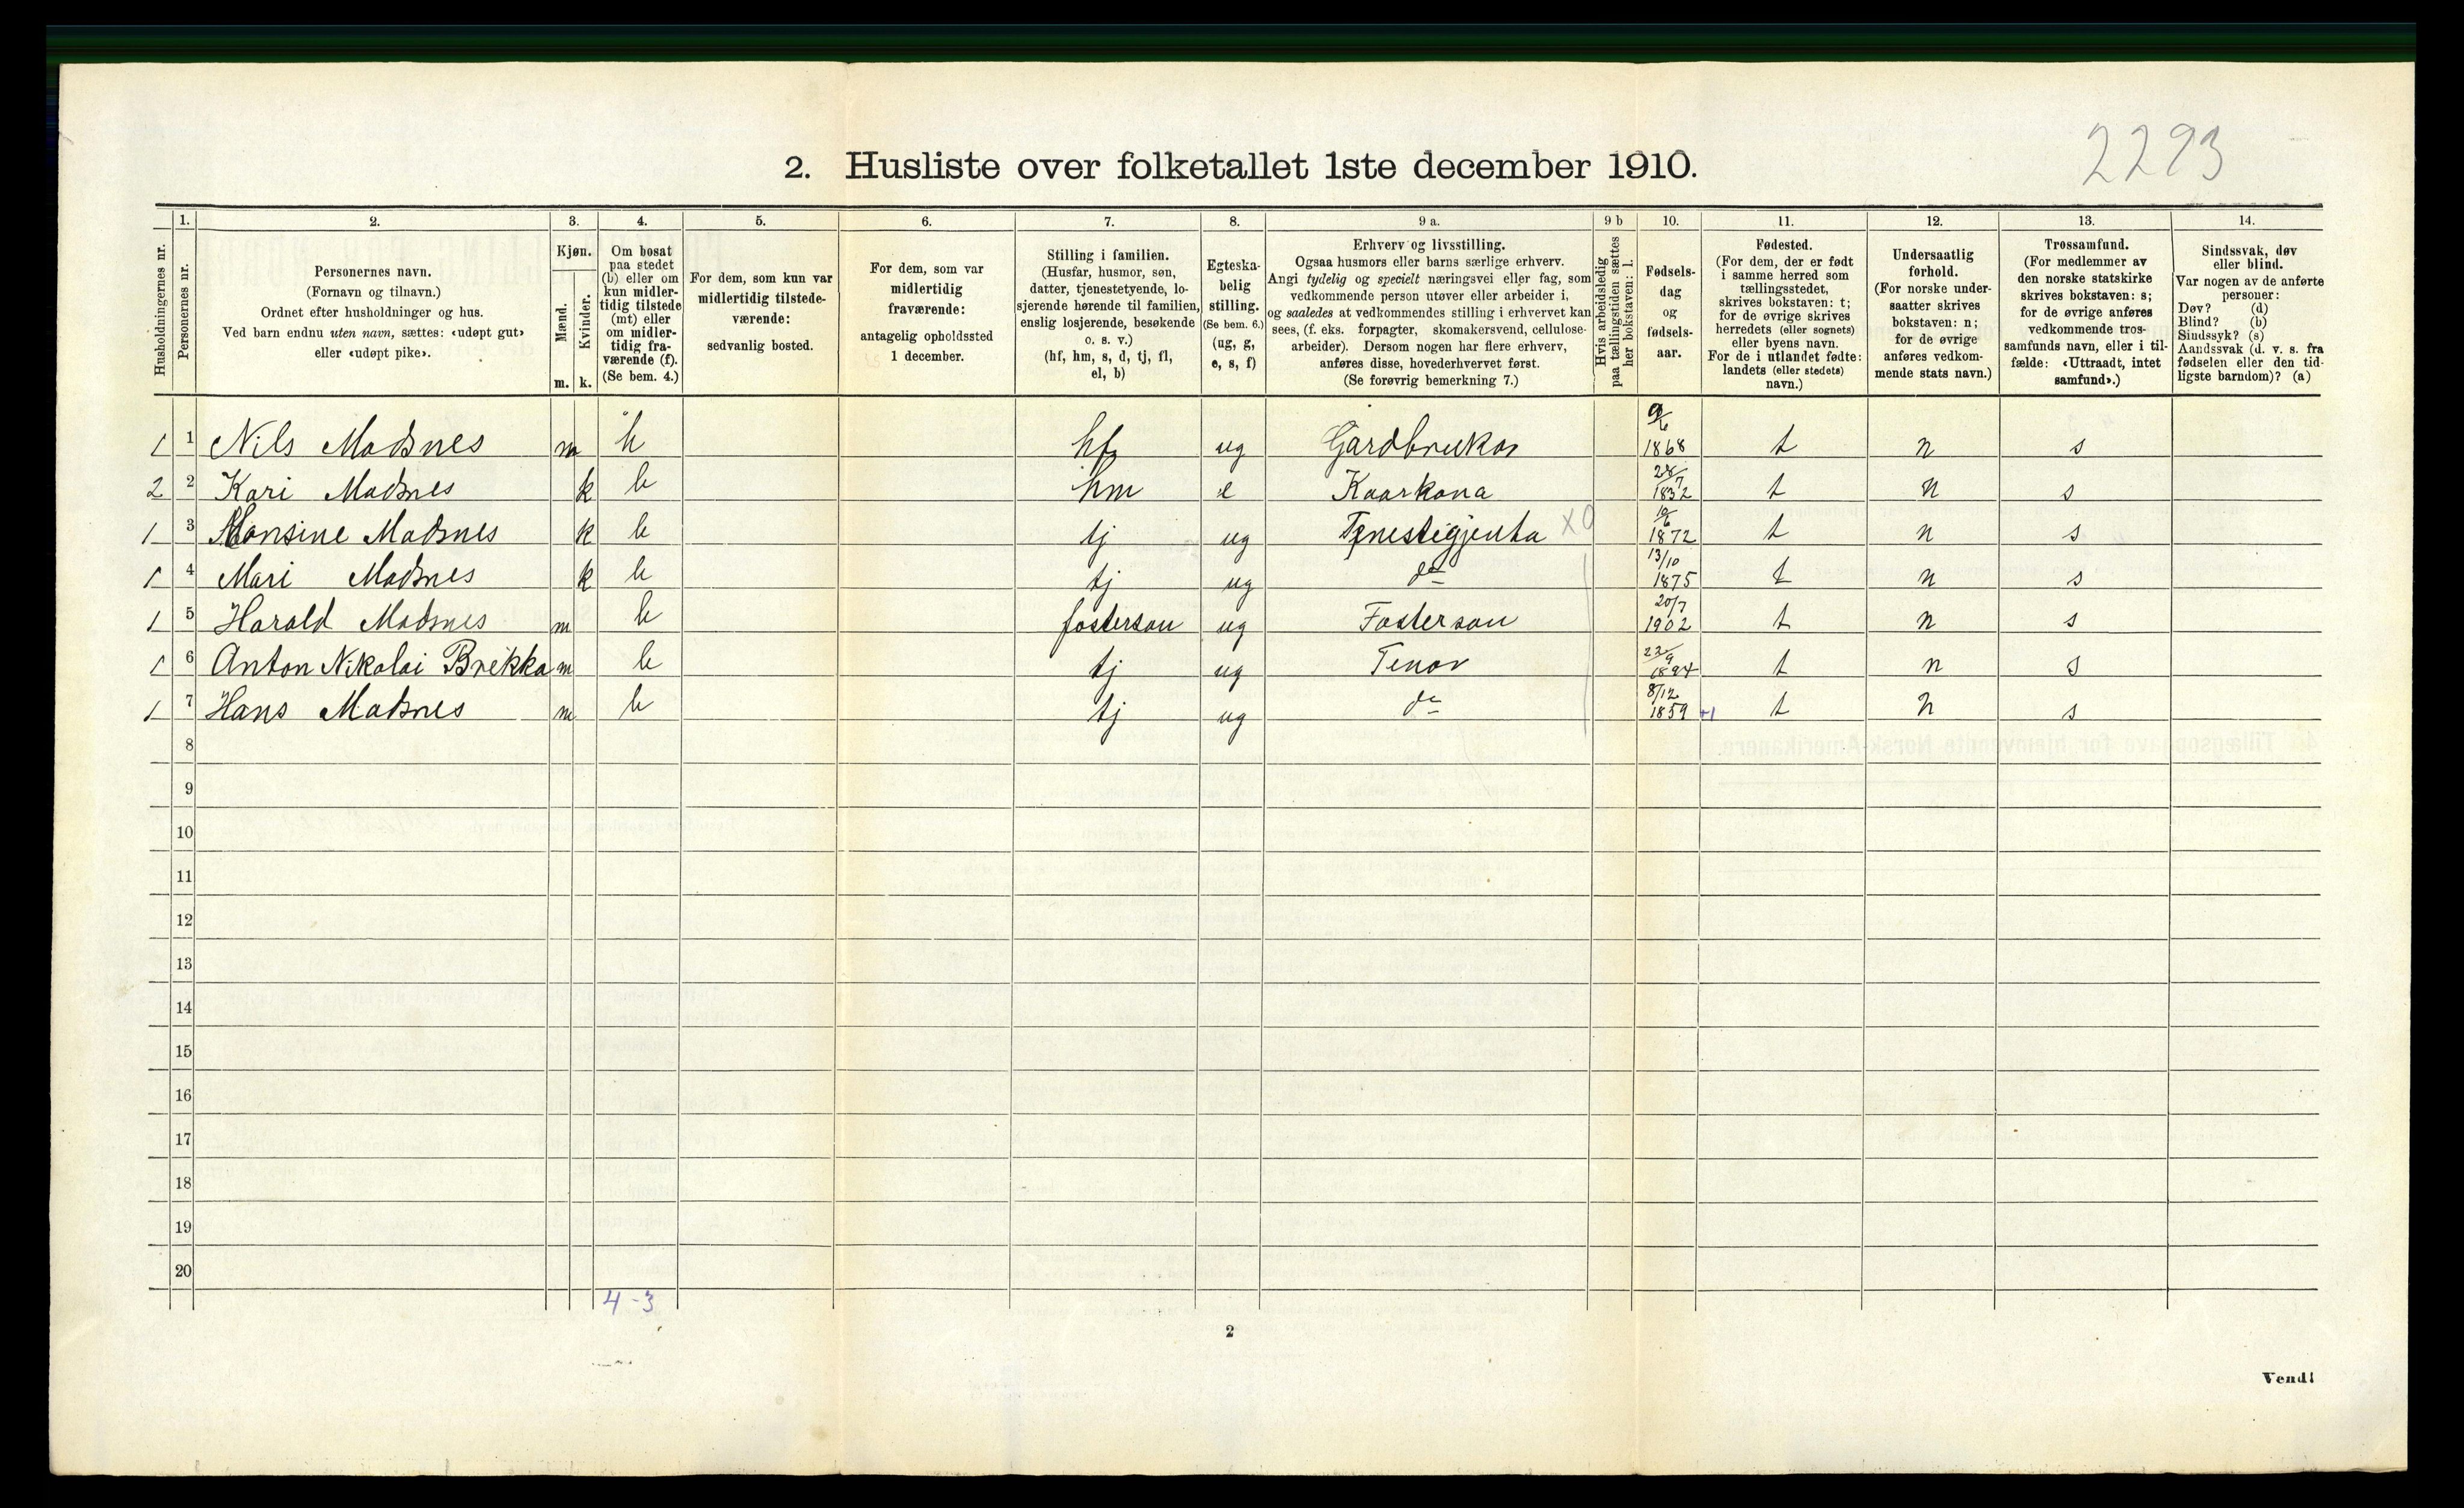 2293
2. Husliste over folketallet 1ste december 1910.
1. 2. 3. 4. 5. 6. 7. 8. 9 a. 9 b 10. 11. 12. 13. 14.
Husholdningernes nr.
Personernes nr.
Personernes navn.
(Fornavn og tilnavn.)
Ordnet efter husholdninger og hus.
Ved barn endnu uten navn, sættes: «udøpt gut»
eller «udøpt pike».
Kjøn.
Mænd.
Kvinder.
m. k.
Om bosat
paa stedet
(b) eller om
kun midler-
tidig tilstede
(mt) eller
om midler-
tidig fra-
værende (f).
(Se bem. 4.)
For dem, som kun var
midlertidig tilstede-
værende:
sedvanlig bosted.
For dem, som var
midlertidig
fraværende:
antagelig opholdssted
1 december.
Stilling i familien.
(Husfar, husmor, søn,
datter, tjenestetyende, lo-
sjerende hørende til familien,
enslig losjerende, besøkende
o. s. v.)
(hf, hm, s, d, tj, fl,
el, b)
Egteska-
belig
stilling.
(Se bem. 6.)
(ug, g,
e, s, f)
Erhverv og livsstilling.
Ogsaa husmors eller barns særlige erhverv.
Angi tydelig og specielt næringsvei eller fag, som
vedkommende person utøver eller arbeider i,
og saaledes at vedkommendes stilling i erhvervet kan
sees, (f. eks. forpagter, skomakersvend, cellulose-
arbeider). Dersom nogen har flere erhverv,
anføres disse, hovederhvervet først.
(Se forøvrig bemerkning 7.)
Hvis arbeidsledig
paa tællingstiden sættes
her bokstaven: l.
Fødsels-
dag
og
fødsels-
aar.
Fødested.
(For dem, der er født
i samme herred som
tællingsstedet,
skrives bokstaven: t;
for de øvrige skrives
herredets (eller sognets)
eller byens navn.
For de i utlandet fødte:
landets (eller stedets)
navn.)
Undersaatlig
forhold.
(For norske under-
saatter skrives
bokstaven: n;
for de øvrige
anføres vedkom-
mende stats navn.)
Trossamfund.
(For medlemmer av
den norske statskirke
skrives bokstaven: s;
for de øvrige anføres
vedkommende tros-
samfunds navn, eller i til-
fælde: «Uttraadt, intet
samfund».)
Sindssvak, døv
eller blind.
Var nogen av de anførte
personer:
Døv? (d)
Blind? (b)
Sindssyk? (s)
Aandssvak (d. v. s. fra
fødselen eller den tid-
ligste barndom)? (a)
1 1 Nils Madsnes m b hf ug Gardbrukar 9/6 1868 t n s
2 2 Kari Madsnes k b hm e Kaarkona 28/7 1832 t n s
1 3 Hansine Madsnes k b tj ug Tenestegjenta X0 10/6 1872 t n s
1 4 Mari Madsnes k b tj ug do 13/10 1875 t n s
1 5 Harald Madsnes m b fosterson ug Fosterson 20/7 1902 t n s
1 6 Anton Nikolai Brekka m b tj ug Tenar 23/9 1894 t n s
1 7 Hans Madsnes m b tj ug do 8/12 1859 +1 t n s
8
9
10
11
12
13
14
15
16
17
18
19
20
4-3
2
Vend!